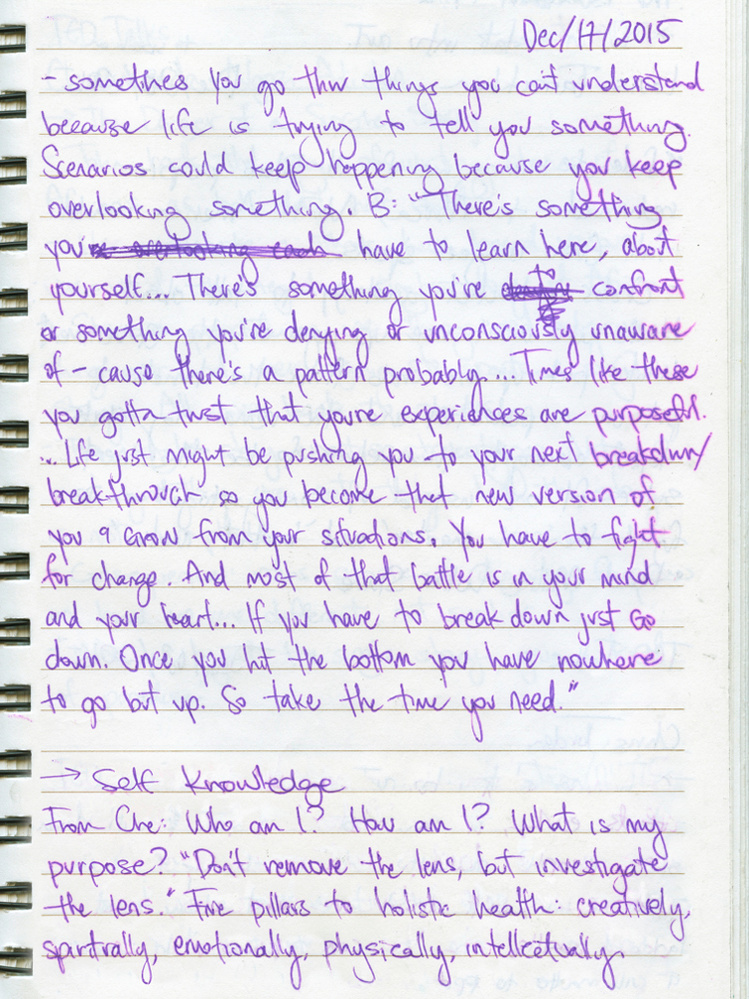 Dec/17/2015
- sometimes you go thru things you can't understand
because life is trying to tell you something.
Scenarios could keep happening because you keep
overlooking something. B: "There's something
you're overlooking each have to learn here, about
yourself... There's something you're to confront
or something you're denying or unconsciously unaware
of - cause there's a pattern probably... Times like these
you gotta trust that you're experiences are purposeful.
... Life just might be pushing you to your next breakdown/
breakthrough so you become that new version of
you & grow from your situations. You have to fight
for change. And most of that battle is in your mind
and your heart... If you have to break down just Go
down. Once you hit the bottom you have nowhere
to go but up. So take the time you need."
→ Self Knowledge
From Che: Who am I? How am I? What is my
purpose? "Don't remove the lens, but investigate
the lens." Five pillars to holistic health: creatively,
spiritually, emotionally, physically, intellectually.